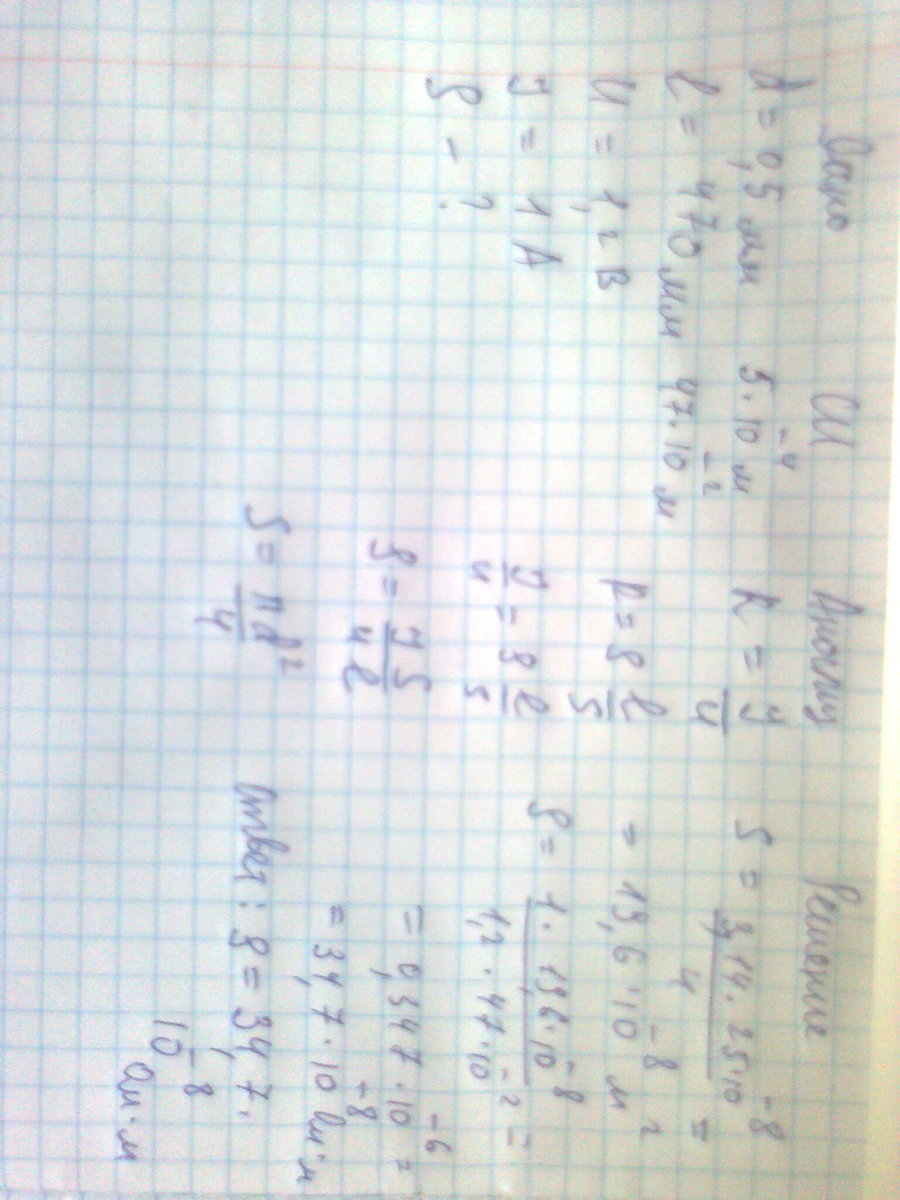 Дано
d = 0,5 мм
l = 470 мм
U = 1,2 В
J = 1 А
ρ – ?
СИ
5·10⁻⁴ м
47·10⁻² м
Анализ
R = J/U
R = ρ l/S
J/U = ρ l/S
ρ = JS/Ul
S = πd²/4
Решение
S = 3,14·25·10⁻⁸/4 =
= 19,6·10⁻⁸ м²
ρ = 1·19,6·10⁻⁸/1,2·47·10⁻² =
= 0,347·10⁻⁶ =
= 34,7·10⁻⁸ Ом·м
Ответ: ρ = 34,7·
10⁻⁸
Ом·м